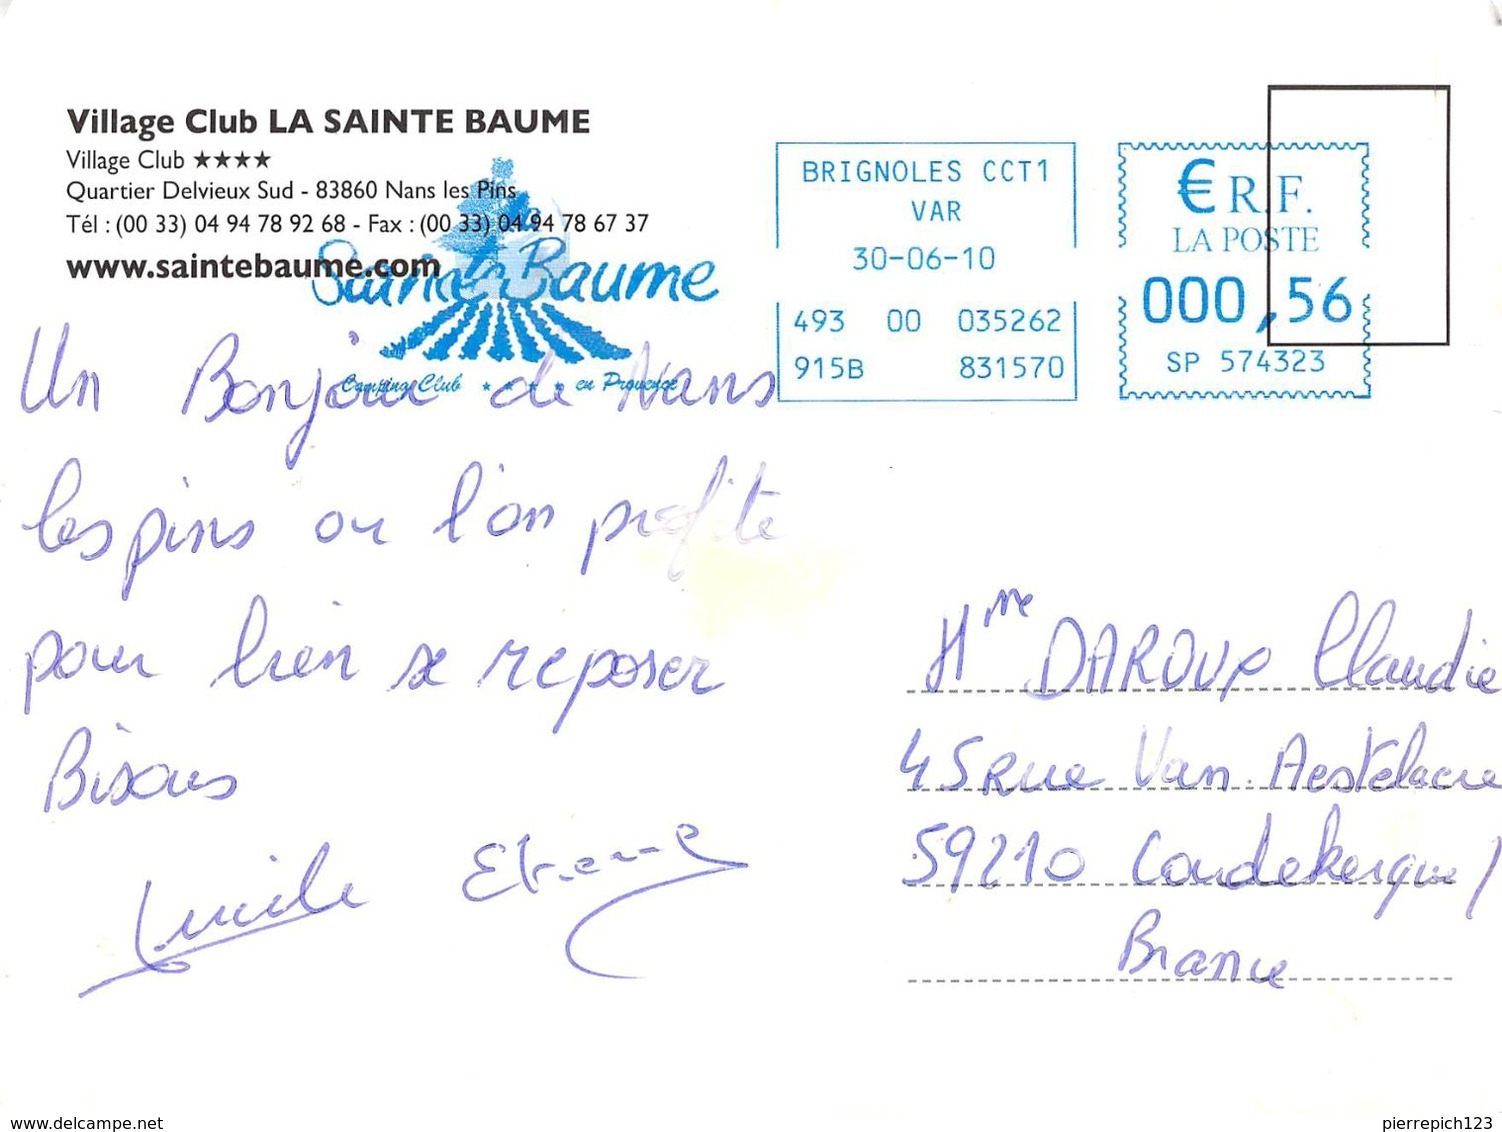 Village Club LA SAINTE BAUME
Village Club ★★★★
Quartier Delvieux Sud - 83860 Nans les Pins
Tél : (00 33) 04 94 78 92 68 - Fax : (00 33) 04 94 78 67 37
www.saintebaume.com
Sainte Baume
Camping Club ★ ★ ★ ★ en Provence
BRIGNOLES CCT1
VAR
30-06-10
493 00 035262
915B 831570
€ R.F.
LA POSTE
000,56
SP 574323
Un Bonjour de Nans
les pins ou l'on profite
pour bien se reposer
Bisous
Lucile Etienne
Mme DAROUX Claudie
45 Rue Van Aestelacre
59210 Coudekerque/
Brance
www.delcampe.net
pierrepich123